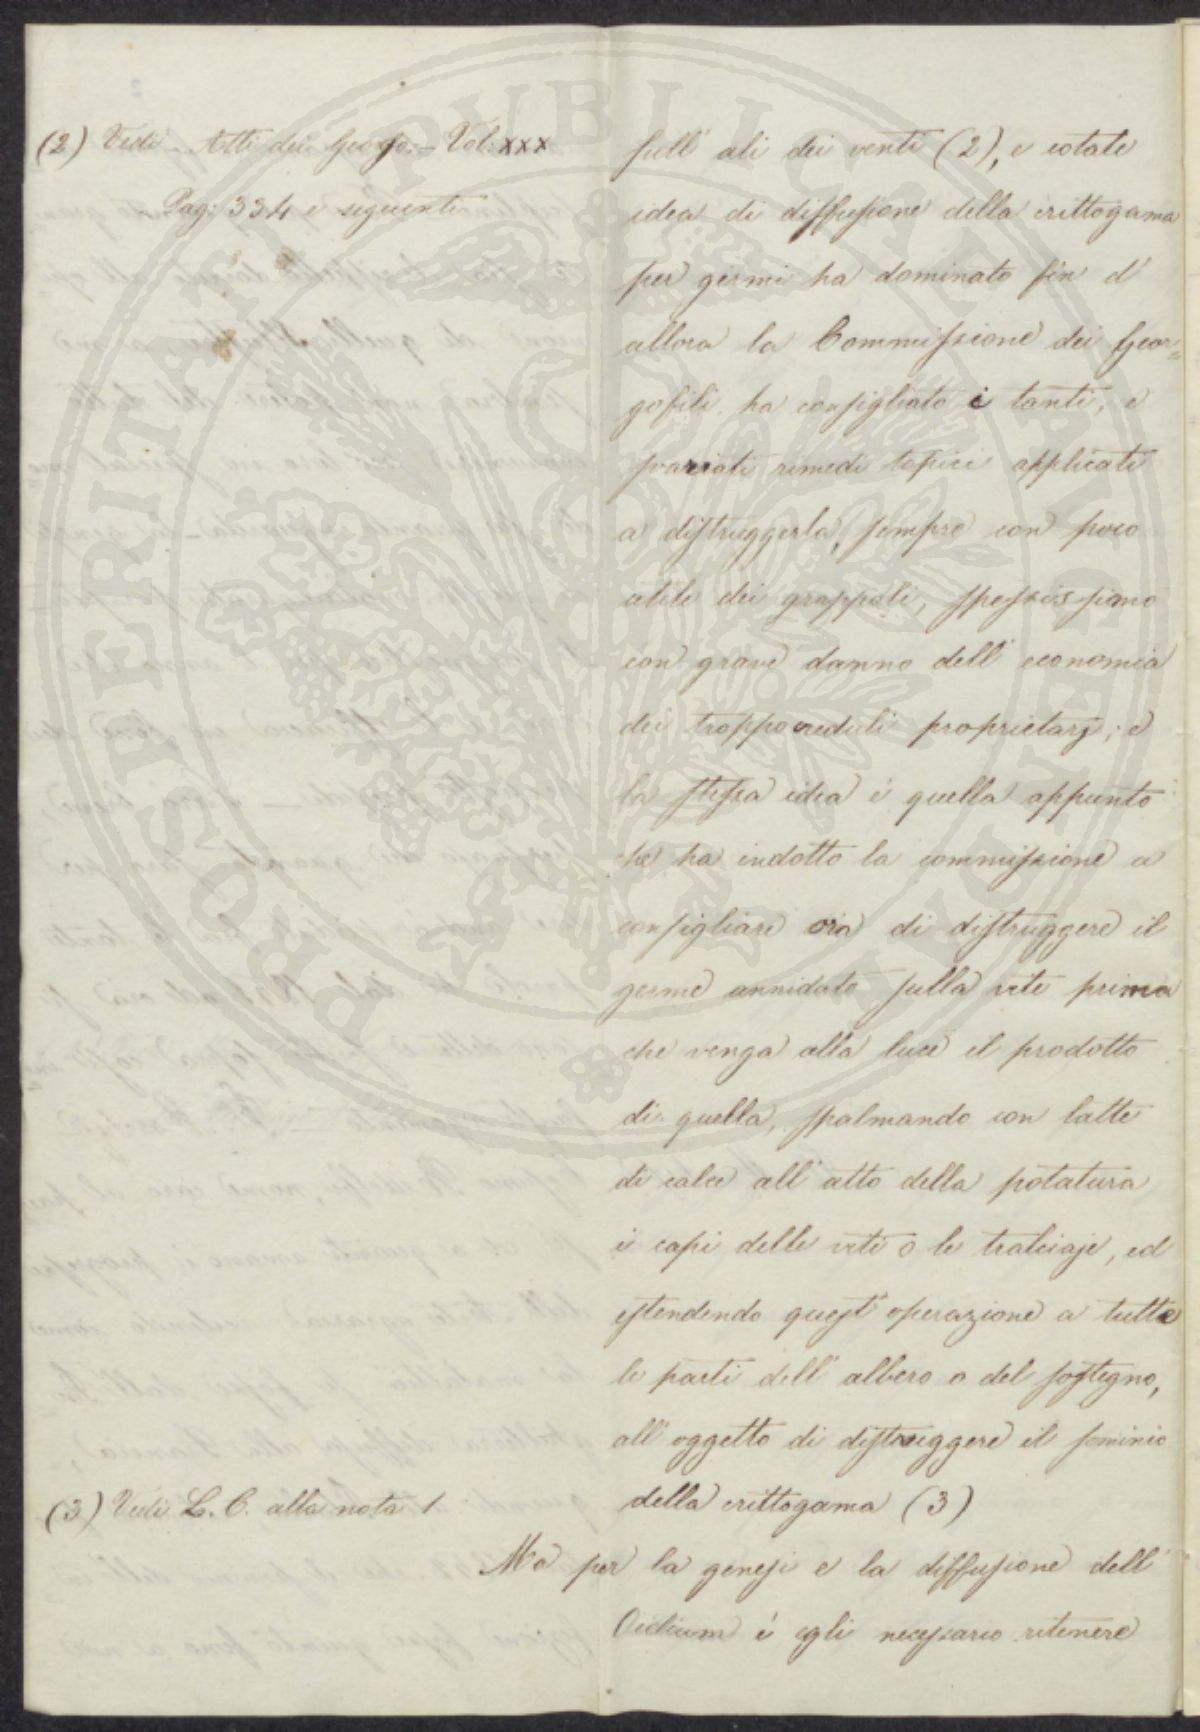 (2) Vedi Atti dei Georgo: – Vol: XXX
Pag: 334 e seguenti
sull' ali dei venti (2), e cotale
idea di diffusione della crittogama
per germi ha dominato fin d'
allora la Commissione dei Geor=
gofili, ha consigliato i tanti, e
svariati rimedi topici applicati
a distruggerla, sempre con poco
utile dei grappoli, spessissimo
con grave danno dell' economia
dei troppo creduli proprietarj; e
la stessa idea è quella appunto
che ha indotto la commissione a
consigliare ora di distruggere il
germe annidato sulla vite prima
che venga alla luce il prodotto
di quella, spalmando con latte
di calce all' atto della potatura
i capi delle viti o le tralciaje, ed
estendendo quest' operazione a tutte
le parti dell' albero o del sostegno,
all' oggetto di distruggere il seminio
della crittogama (3)
(3) Vedi L. C. alla nota 1
Ma per la genesi e la diffusione dell'
Oidium è egli necessario ritenere
PROSPERITATI PUBLICAE AUGENDAE